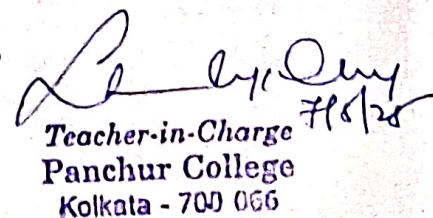 7/8/25
Teacher-in-Charge
Panchur College
Kolkata - 700 066